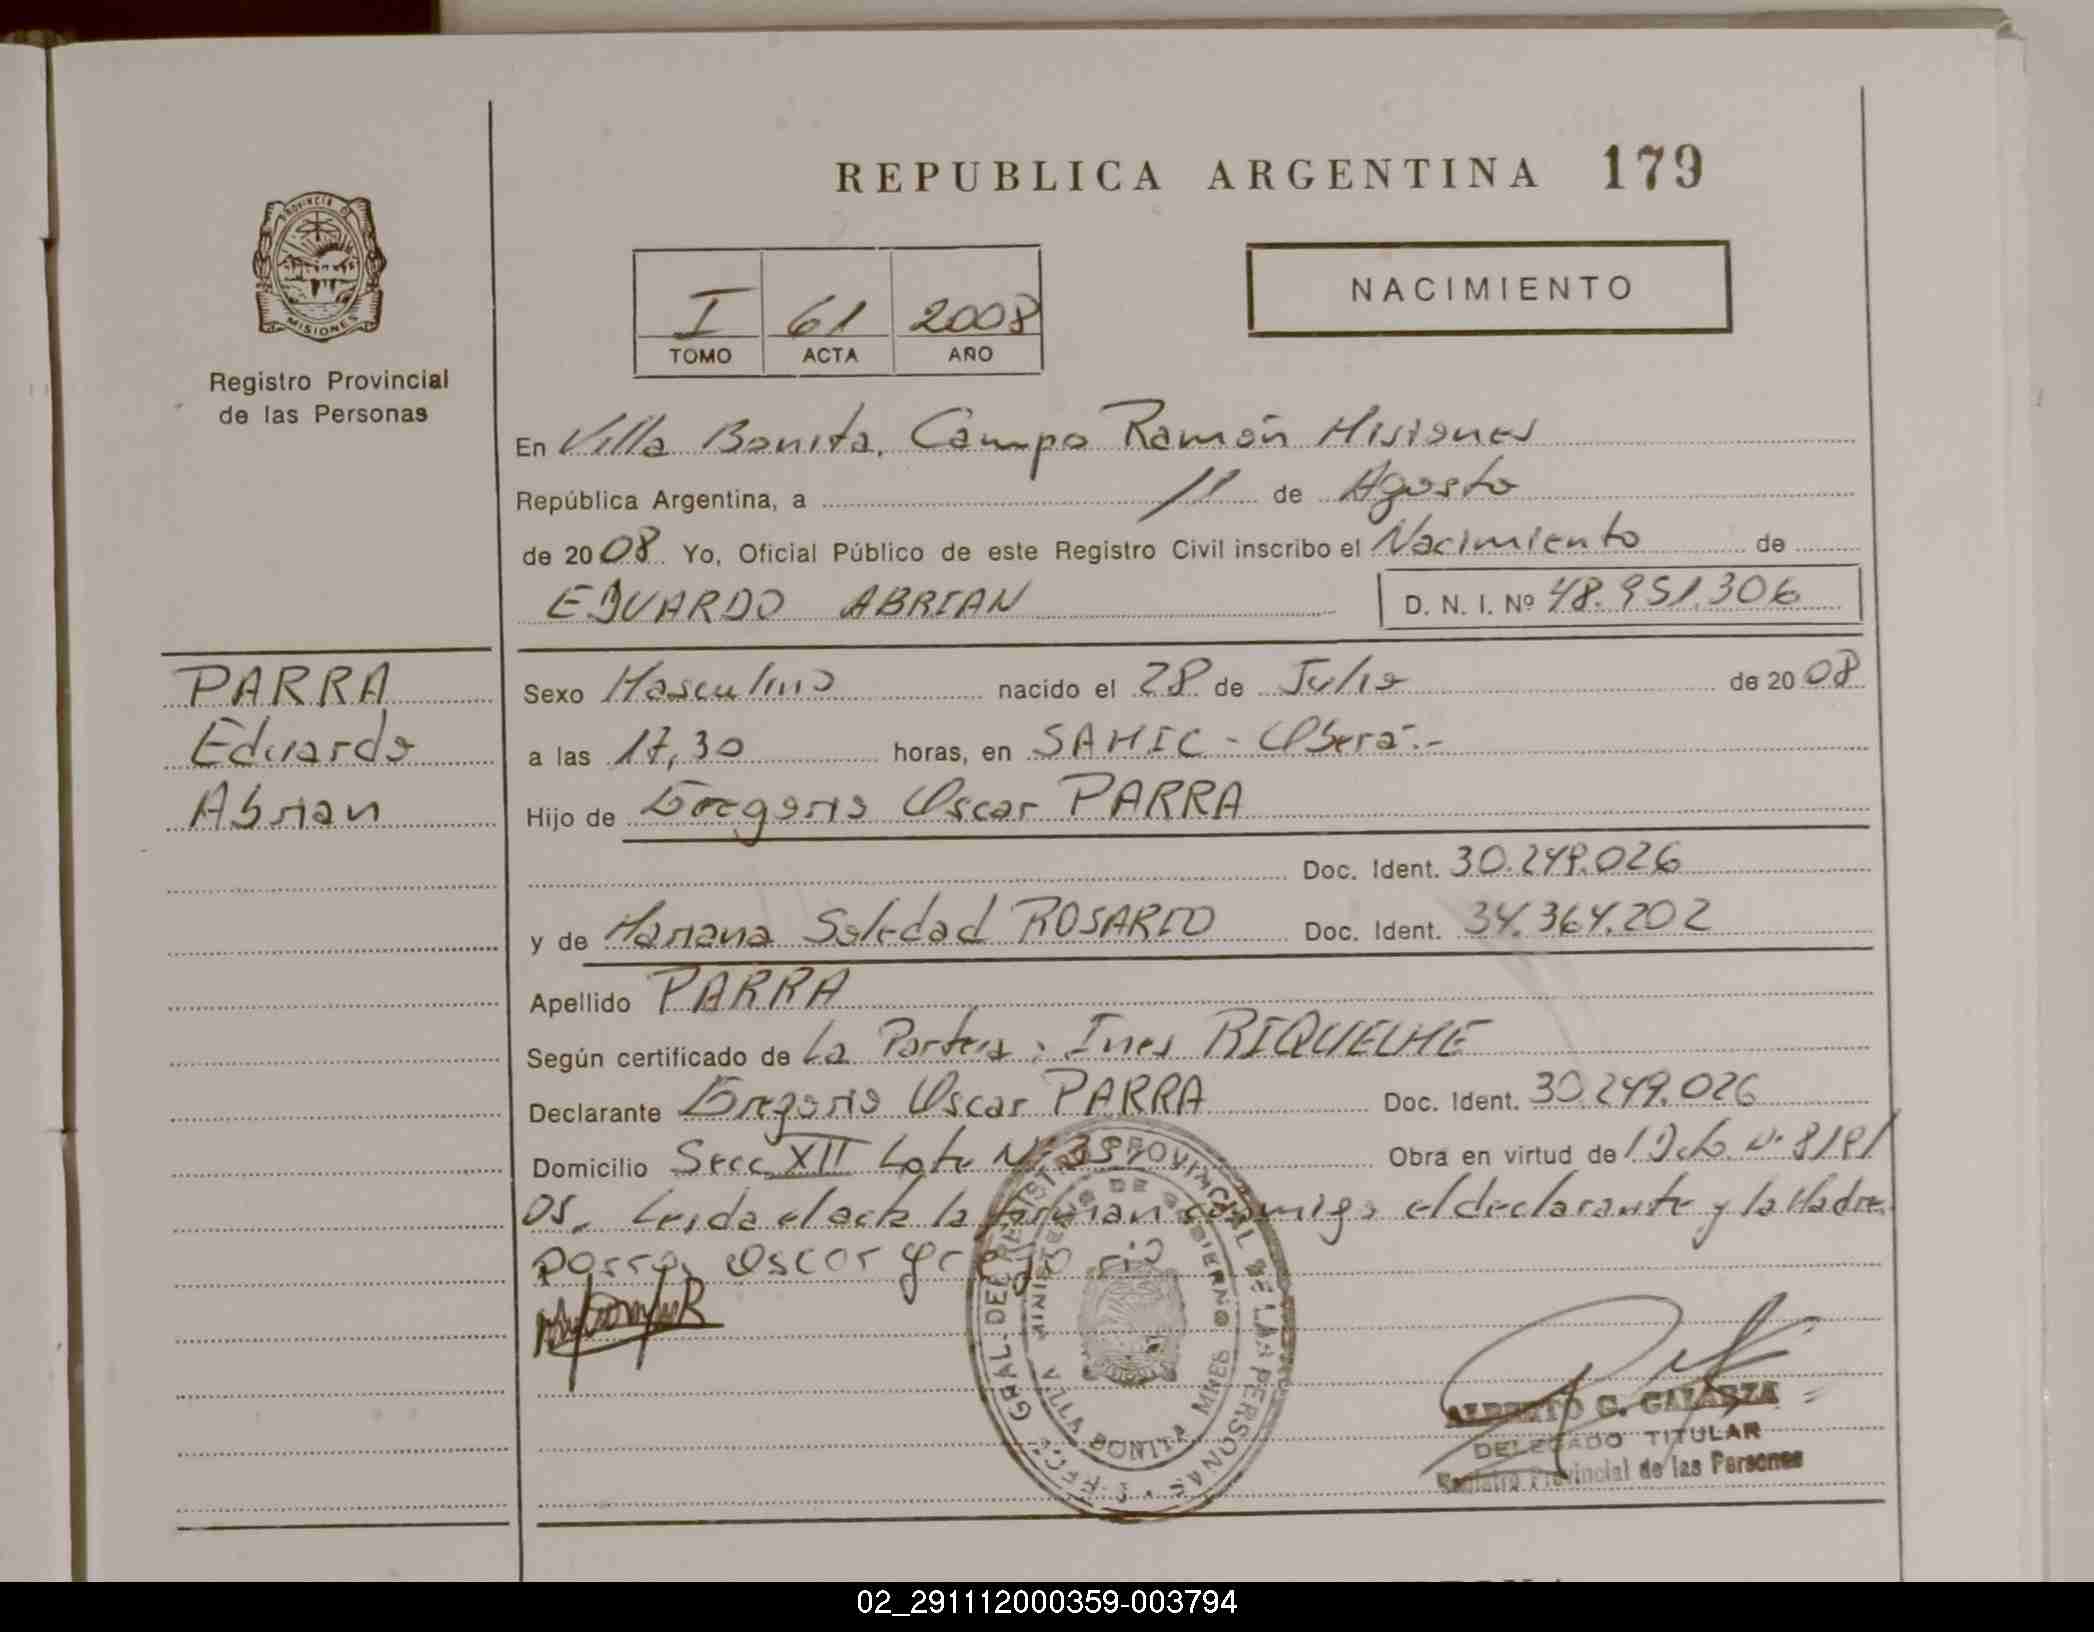 REPUBLICA ARGENTINA 179
PROVINCIA DE
MISIONES
Registro Provincial
de las Personas
I 61 2008
TOMO ACTA AÑO
NACIMIENTO
En Villa Bonita, Campo Ramón Misiones
República Argentina, a 11 de Agosto
de 2008 Yo, Oficial Público de este Registro Civil inscribo el Nacimiento de
EDUARDO ABRIAN D. N. I. Nº 48.951.306
PARRA
Eduardo
Abrian
Sexo Masculino nacido el 28 de Julio de 2008
a las 17,30 horas, en SAMIC - Oberá.-
Hijo de Gregorio Oscar PARRA
Doc. Ident. 30.249.026
y de Mariana Soledad ROSARIO Doc. Ident. 34.364.202
Apellido PARRA
Según certificado de La Partera: Ines RIQUELME
Declarante Gregorio Oscar PARRA Doc. Ident. 30.249.026
Domicilio Secc. XII Lote Nº Obra en virtud de Dcto Nº 819/
05. Leida el acta la firman conmigo el declarante y la Madre.
parra oscar gregorio
DEL REGISTRO PROVINCIAL DE LAS PERSONAS
MINISTERIO DE GOBIERNO
VILLA BONITA MNES
ALBERTO G. GALARZA
DELEGADO TITULAR
Registro Provincial de las Personas
02_291112000359-003794